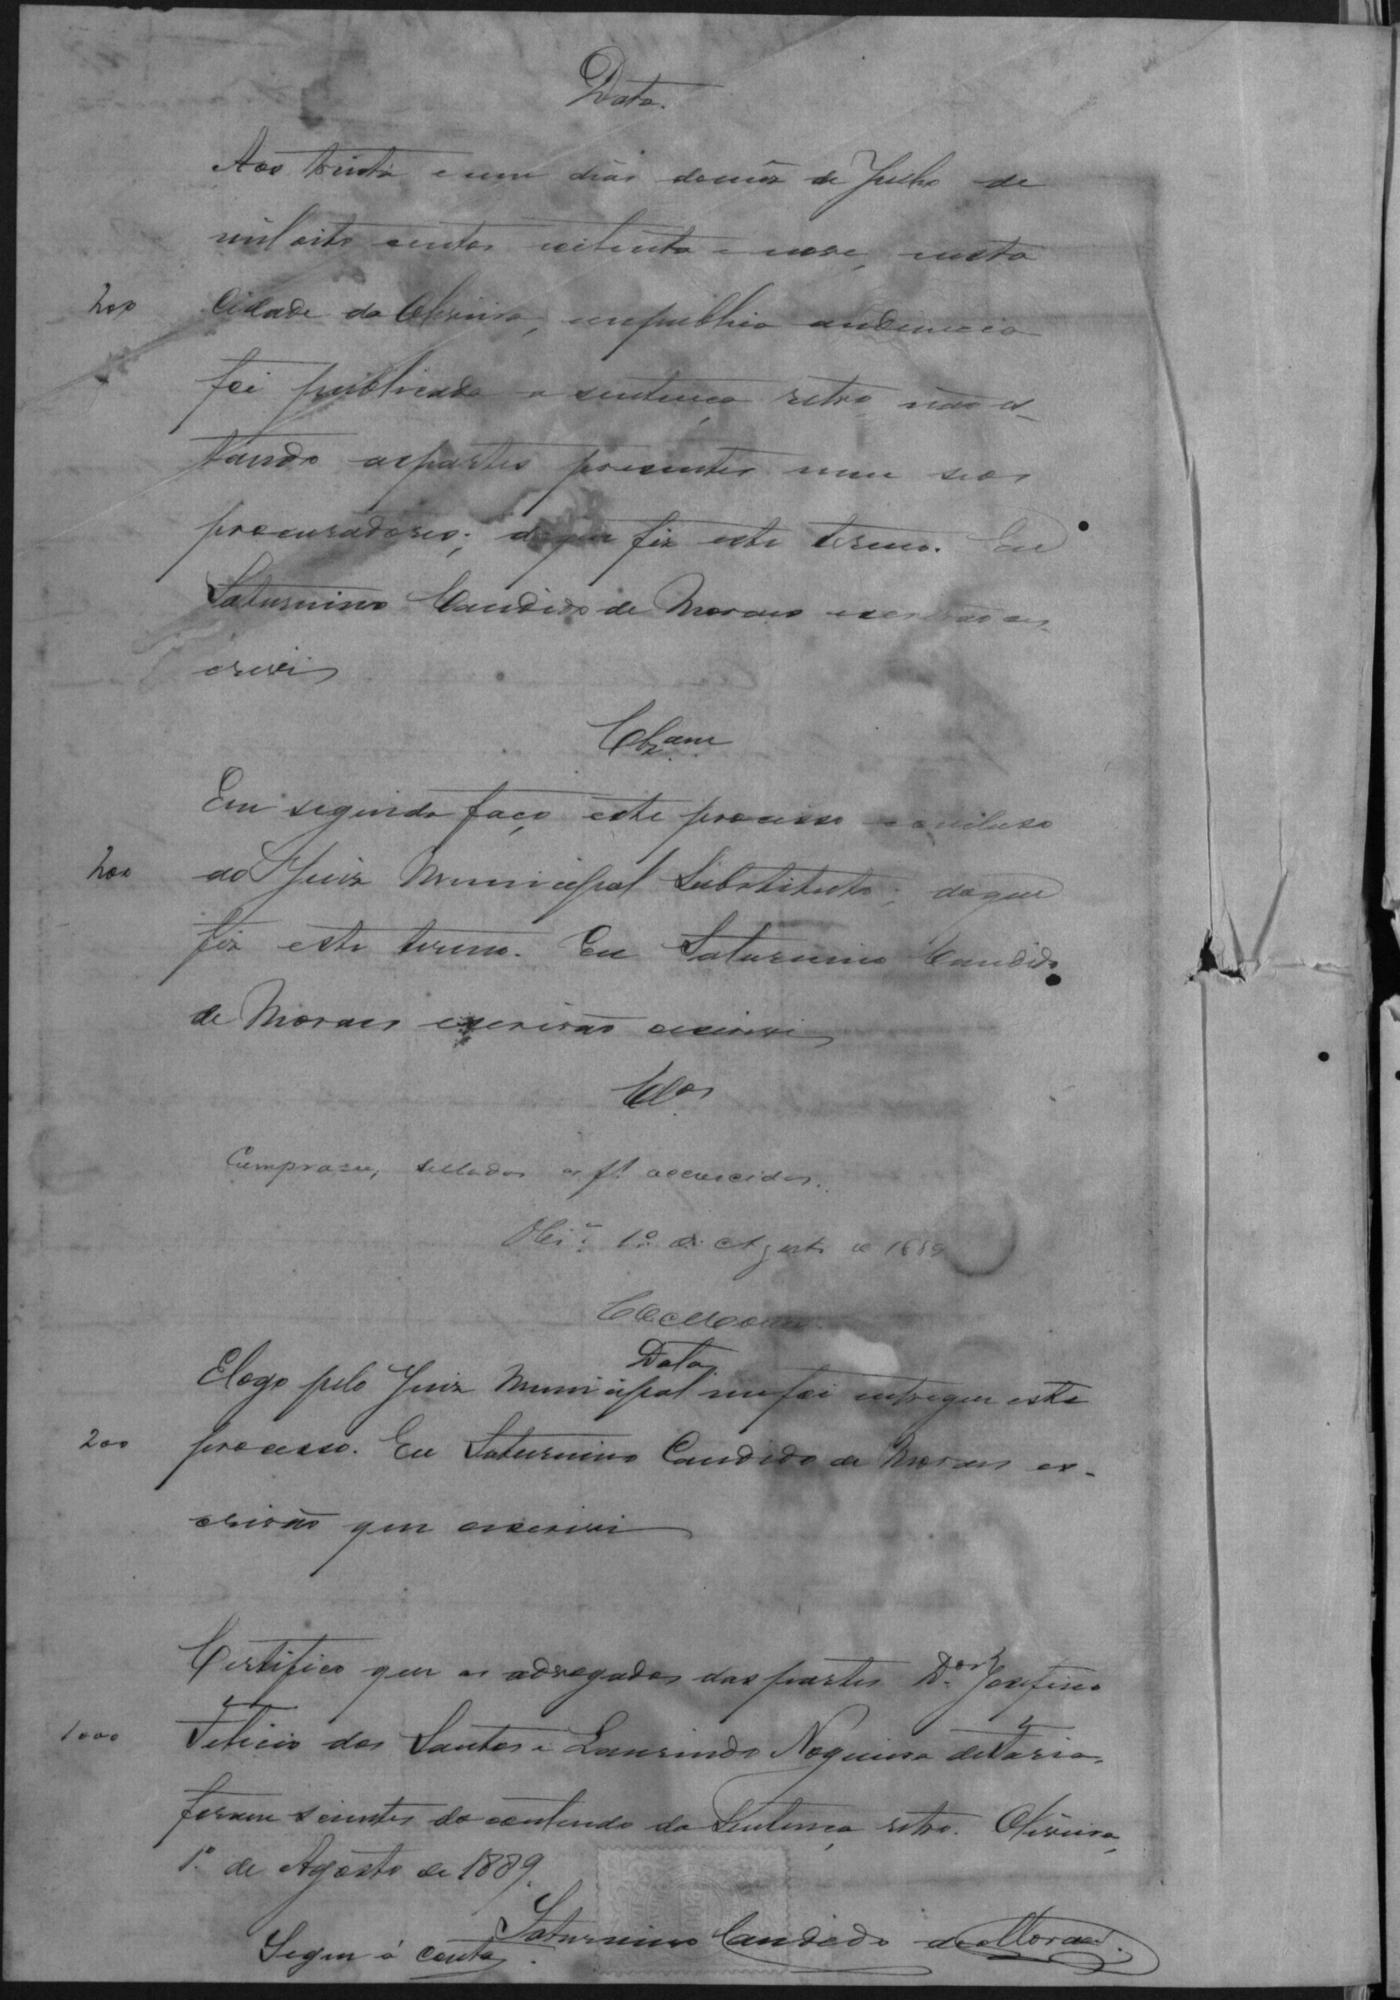 Data.
Aos trinta e um dias do mez de Julho de
mil oito centos oitenta e nove, nesta
200 Cidade da Oliveira, em publica audiencia
foi publicada a sentença retro, não es-
tando as partes presentes nem seos
procuradores; do que fiz este termo. Eu
Saturnino Candido de Moraes escrivão es-
crevi
Clzam
Em seguida faço este processo concluso
200 ao Juiz Municipal Substituto; do que
fiz este termo. Eu Saturnino Candido
de Moraes escrivão escrevi
Clos
Cumpra-se, sellados as fs. accrescidas.
Olivª. 1º de Agosto de 1889
Data
E logo pelo Juiz Municipal me foi entregue este
200 processo. Eu Saturnino Candido de Moraes es-
crivão que escrevi
Certifico que os advogados das partes Dor. Josefino
1000 Felicio dos Santos e Laurindo Nogueira de Faria,
foram scientes do conteudo da Sentença retro. Oliveira,
1º de Agosto de 1889.
Saturnino Candido de Moraes.
Segue á conta.